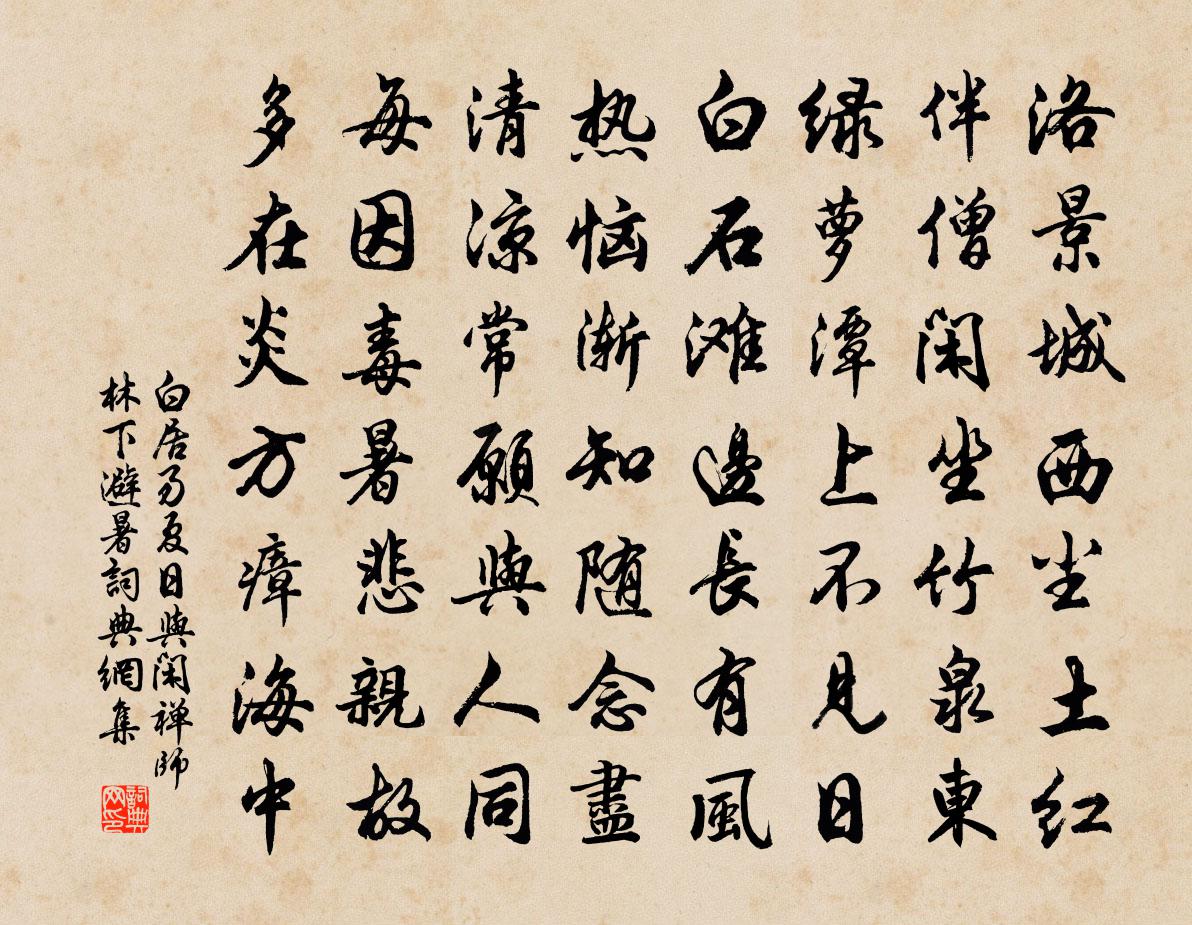 洛景城西尘土红
伴僧闲坐竹泉東
绿萝潭上不见日
白石滩邊長有風
热恼渐知随念盡
清凉常願與人同
每因毒暑悲親故
多在炎方瘴海中
白居易夏日與闲禅師
林下避暑詞典網集
詞典
网印